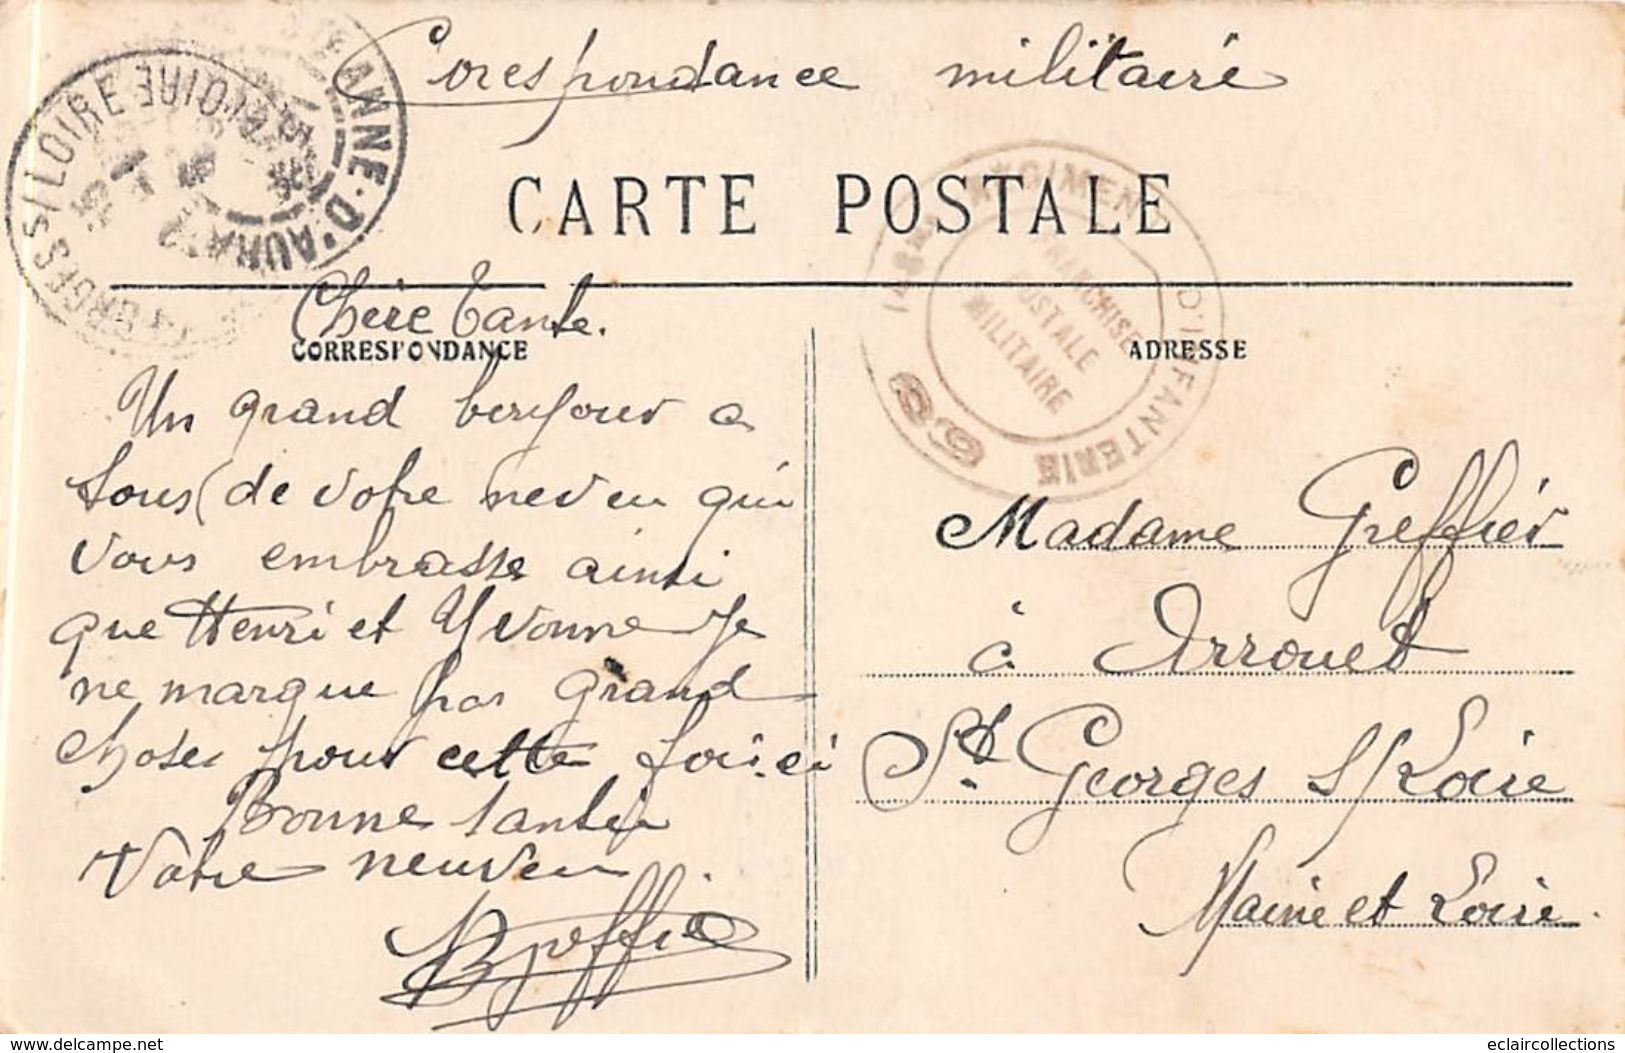 Corespondance militaire
CARTE POSTALE
ST GEORGES S/LOIRE
STE ANNE-D'AURAY
REGIMENT D'INFANTERIE
FRANCHISE
POSTALE
MILITAIRE
CORRESPONDANCE
ADRESSE
Chère Tante.
Un grand bonjour a
tous de votre neveu qui
vous embrasse ainsi
que Henri et Yvonne Je
ne marque pas grand
choses pour cette fois-ci
Bonne santée
Votre neuveu
Greffier
Madame Greffier
à Arrouet
St Georges s/Loire
Maine et Loire.
delcampe.net
eclaircollections